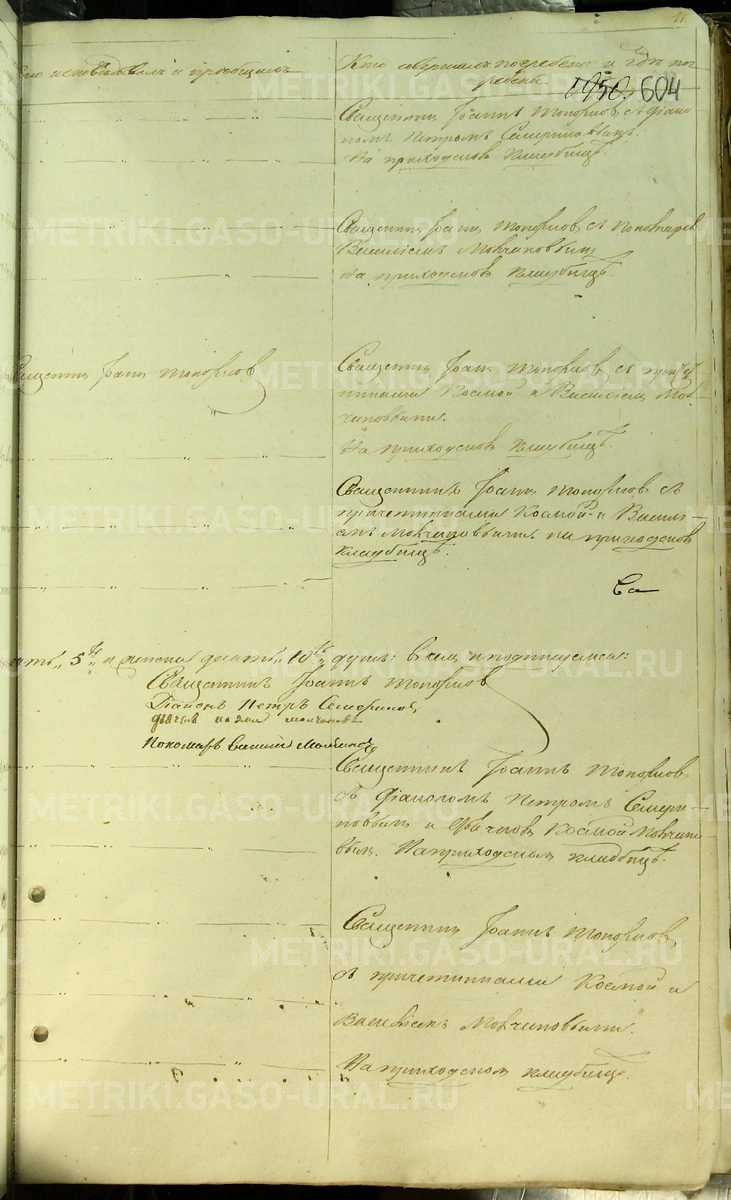 Кто исповѣдывалъ и пріобщалъ
Кто совершалъ погребеніе и гдѣ по-
гребены.
1850. 604
Священникъ Іоаннъ Топорковъ съ Діако-
номъ Петромъ Семериковымъ
На приходскомъ кладбищѣ.
Священникъ Іоаннъ Топорковъ съ Пономаремъ
Василіемъ Молчановымъ
На приходскомъ кладбищѣ.
Священникъ Іоаннъ Топорковъ
Священникъ Іоаннъ Топорковъ съ
Космой и Василіемъ Мол-
чановыми.
На приходскомъ кладбищѣ.
Священникъ Іоаннъ Топорковъ съ
причетниками Космой и Василі-
емъ Молчановыми на приходскомъ
кладбищѣ.
5ть и женска десять 10ть душъ; въ семъ и подписуемся:
Священникъ Іоаннъ Топорковъ
Діаконъ Петръ Семериковъ
Дьячекъ Козма Молчановъ
Пономарь Василій Молчановъ
Священникъ Іоаннъ Топорковъ
съ Діакономъ Петромъ Семери-
ковымъ и Дьячкомъ Космой Молчано-
вымъ. На приходскомъ кладбищѣ.
Священникъ Іоаннъ Топорковъ
съ причетниками Космой и
Василіемъ Молчановыми.
На приходскомъ кладбищѣ.
METRIKI.GASO-URAL.RU